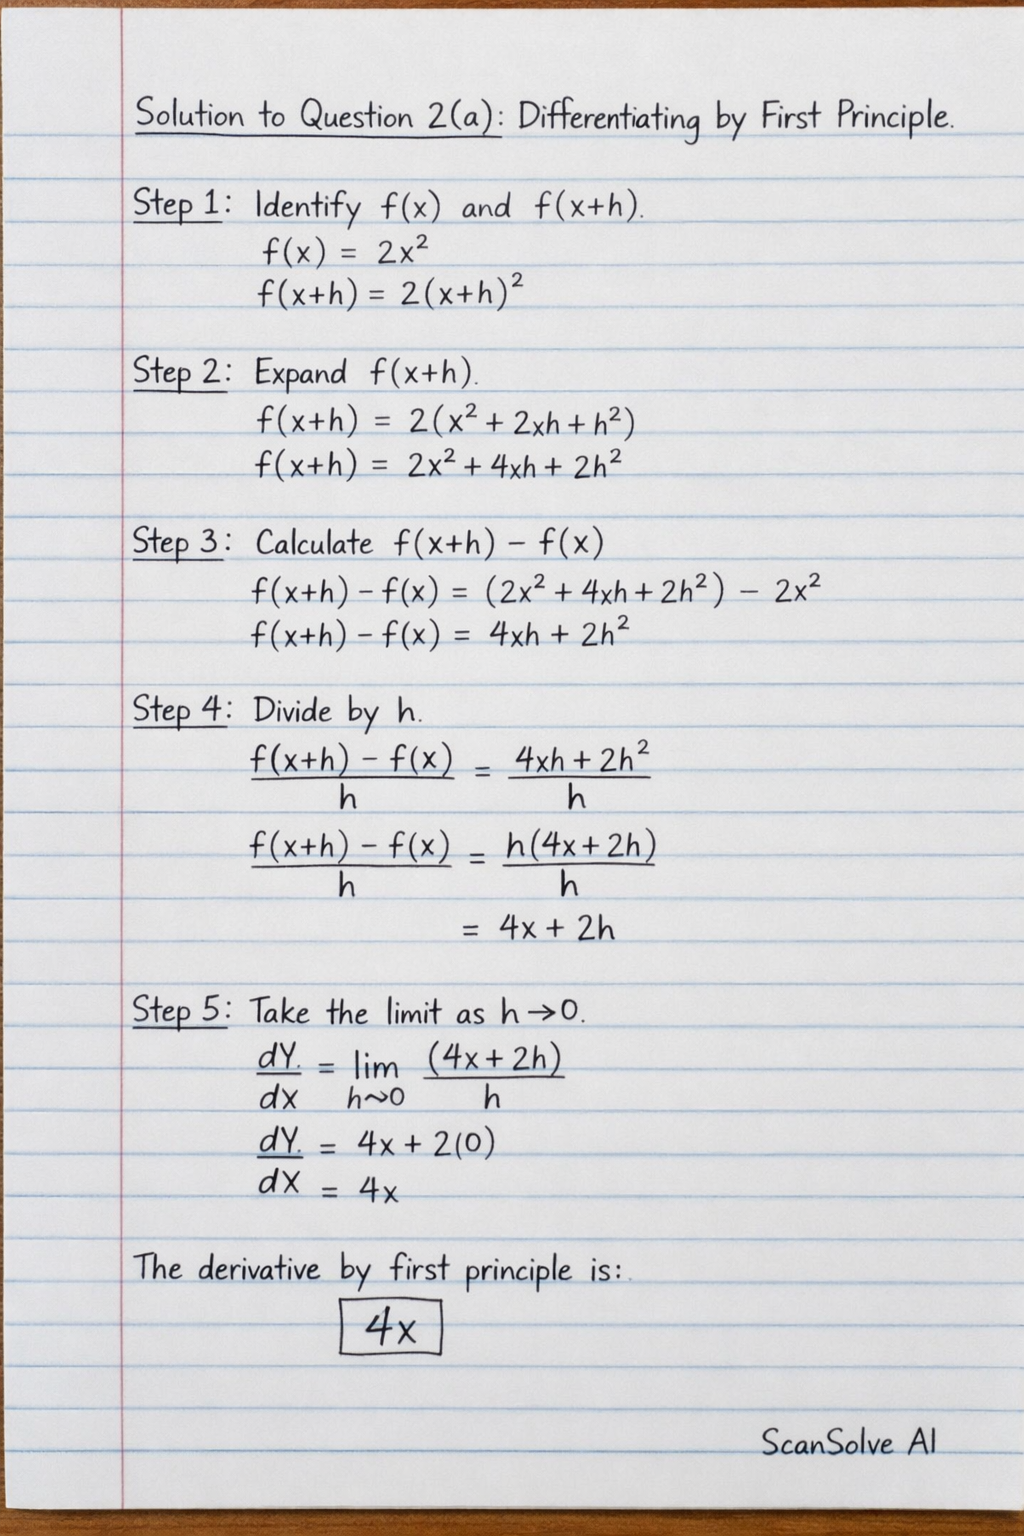 Solution to Question 2(a): Differentiating by First Principle.
Step 1: Identify f(x) and f(x+h).
f(x) = 2x²
f(x+h) = 2(x+h)²
Step 2: Expand f(x+h).
f(x+h) = 2(x² + 2xh + h²)
f(x+h) = 2x² + 4xh + 2h²
Step 3: Calculate f(x+h) − f(x)
f(x+h) − f(x) = (2x² + 4xh + 2h²) − 2x²
f(x+h) − f(x) = 4xh + 2h²
Step 4: Divide by h.
f(x+h) − f(x) = 4xh + 2h²
h h
f(x+h) − f(x) = h(4x + 2h)
h h
= 4x + 2h
Step 5: Take the limit as h→0.
dY. = lim (4x + 2h)
dx h~0 h
dY. = 4x + 2(0)
dx = 4x
The derivative by first principle is:
4x
ScanSolve AI